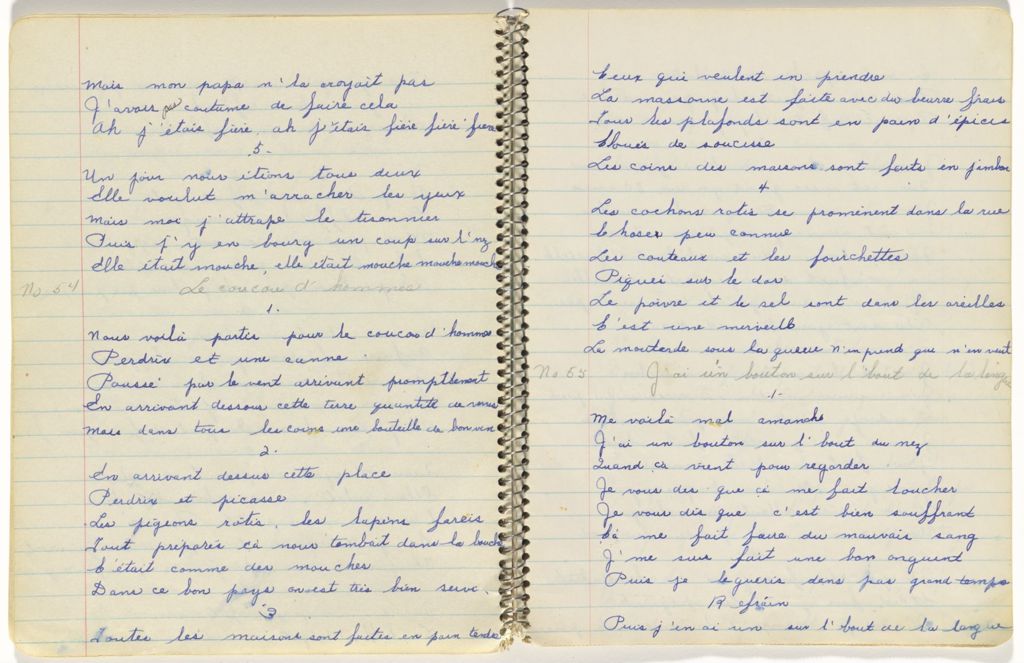 Mais mon papa n'la croyait pas
J'avais pas coutume de faire cela
Ah j'étais fière, ah j'étais fière fière fière
.5.
Un jour nous itions tous deux
Elle voulut m'arracher les yeux
Mais moi j'attrape le tisonnier
Puis j'y en bourg un coup sur l'nez
Elle était mouche, elle était mouche mouche mouch
No 54 Le coucou d'hommes
1.
Nous voilà partis pour le coucou d'homme
Perdrix et une canne
Poussé par le vent arrivant promptlement
En arrivant dessous cette terre quantité de
Mais dans tous les coins une bouteille de bon vin
2.
En arrivant dessus cette place
Perdrix et picasse
Les pigeons rôtis, les lapins farcis
Tout préparés cà nous tombait dans la bouche
C'était comme des mouches
Dans ce bon pays on est très bien servi.
3
Toutes les maisons sont faites en pain tendre
Ceux qui veulent en prendre
La massonne est faite avec du beurre frais
Tous les plafonds sont en pain d'épices
Cloués de soucisse
Les coins des maisons sont faits en jambon
4
Les cochons rotis se prominent dans la rue
Choses peu connue
Les couteaux et les fourchettes
Piqués sur le dos
Le poivre et le sel sont dans les oreilles
C'est une merveille
La moutarde sous la queue n'en prend qui n'en veut
No 55 J'ai un bouton sur l'bout de la langue
.1.
Me voilà mal amanché
J'ai un bouton sur l'bout du nez
Quand cà vient pour regarder
Je vous dis que cà me fait loucher
Je vous dis que c'est bien souffrant
Cà me fait faire du mauvais sang
J'me suis fait une bon onguent
Puis je leguéris dans pas grand temps
Refrain
Puis j'en ai un sur l'bout de la langue